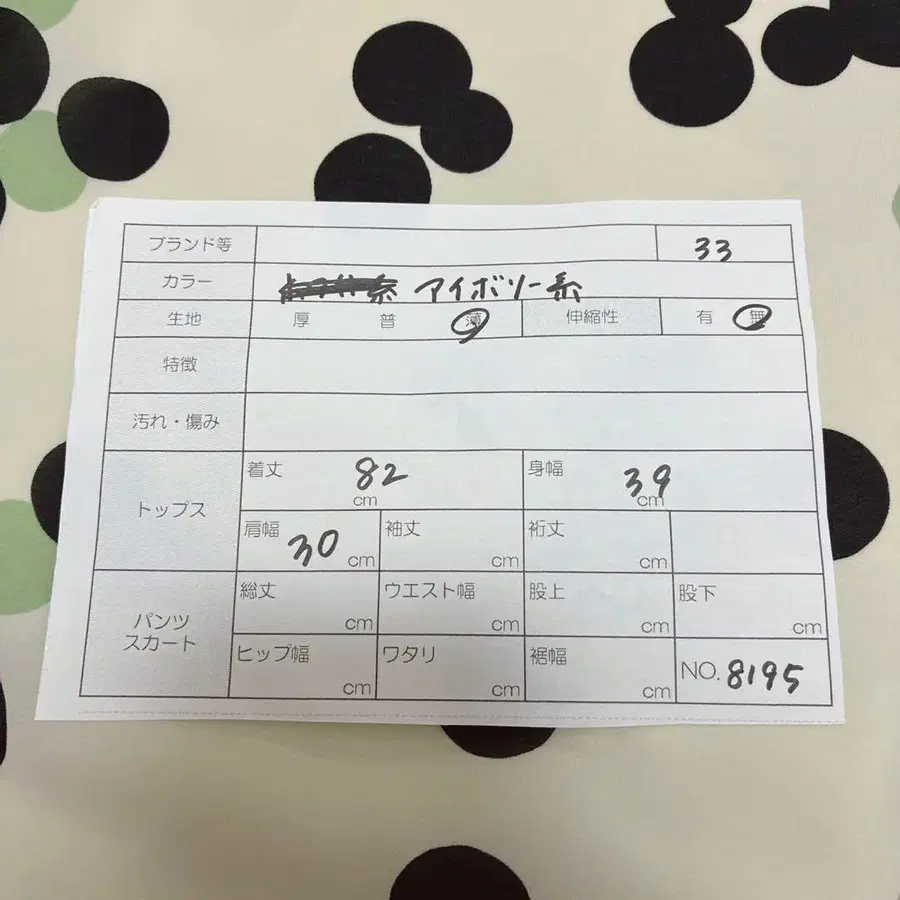 ブランド等 33
カラー 系 アイボリー系
生地 厚 普 薄 伸縮性 有 無
特徴
汚れ・傷み
トップス
着丈 82 cm 身幅 39 cm
肩幅 30 cm 袖丈 cm 裄丈 cm
パンツ
スカート
総丈 cm ウエスト幅 cm 股上 cm 股下 cm
ヒップ幅 cm ワタリ cm 裾幅 cm NO. 8195